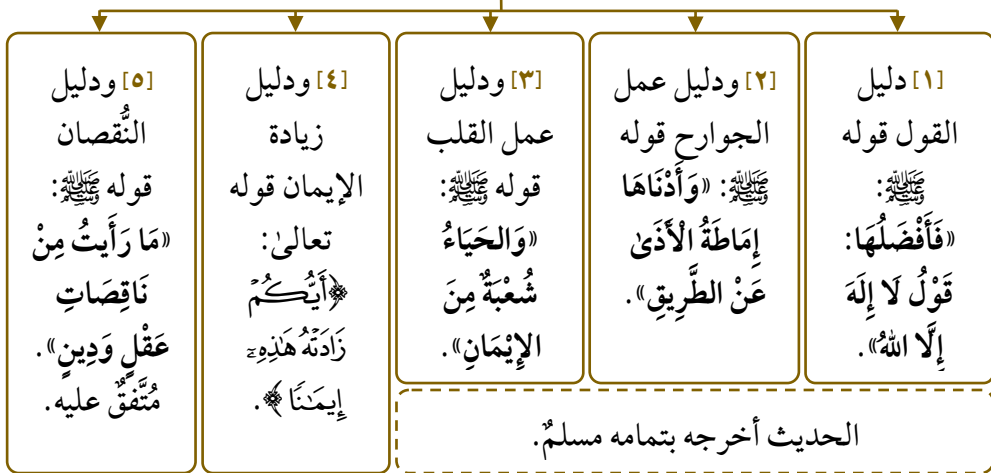 [١] دليل
القول قوله
ﷺ:
«فَأَفْضَلُهَا:
قَوْلُ لَا إِلَهَ
إِلَّا اللهُ».
[٢] ودليل عمل
الجوارح قوله
ﷺ: «وَأَدْنَاهَا
إِمَاطَةُ الْأَذَىٰ
عَنْ الطَّرِيقِ».
[٣] ودليل
عمل القلب
قوله ﷺ:
«وَالحَيَاءُ
شُعْبَةٌ مِنَ
الإِيْمَانِ».
الحديث أخرجه بتمامه مسلمٌ.
[٤] ودليل
زيادة
الإيمان قوله
تعالىٰ:
﴿أَيُّكُمۡ
زَادَتۡهُ هَٰذِهِۦٓ
إِيمَٰنٗا﴾.
[٥] ودليل
النُّقصان
قوله ﷺ:
«مَا رَأَيتُ مِنْ
نَاقِصَاتِ
عَقْلٍ وَدِينٍ».
مُتَّفقٌ عليه.